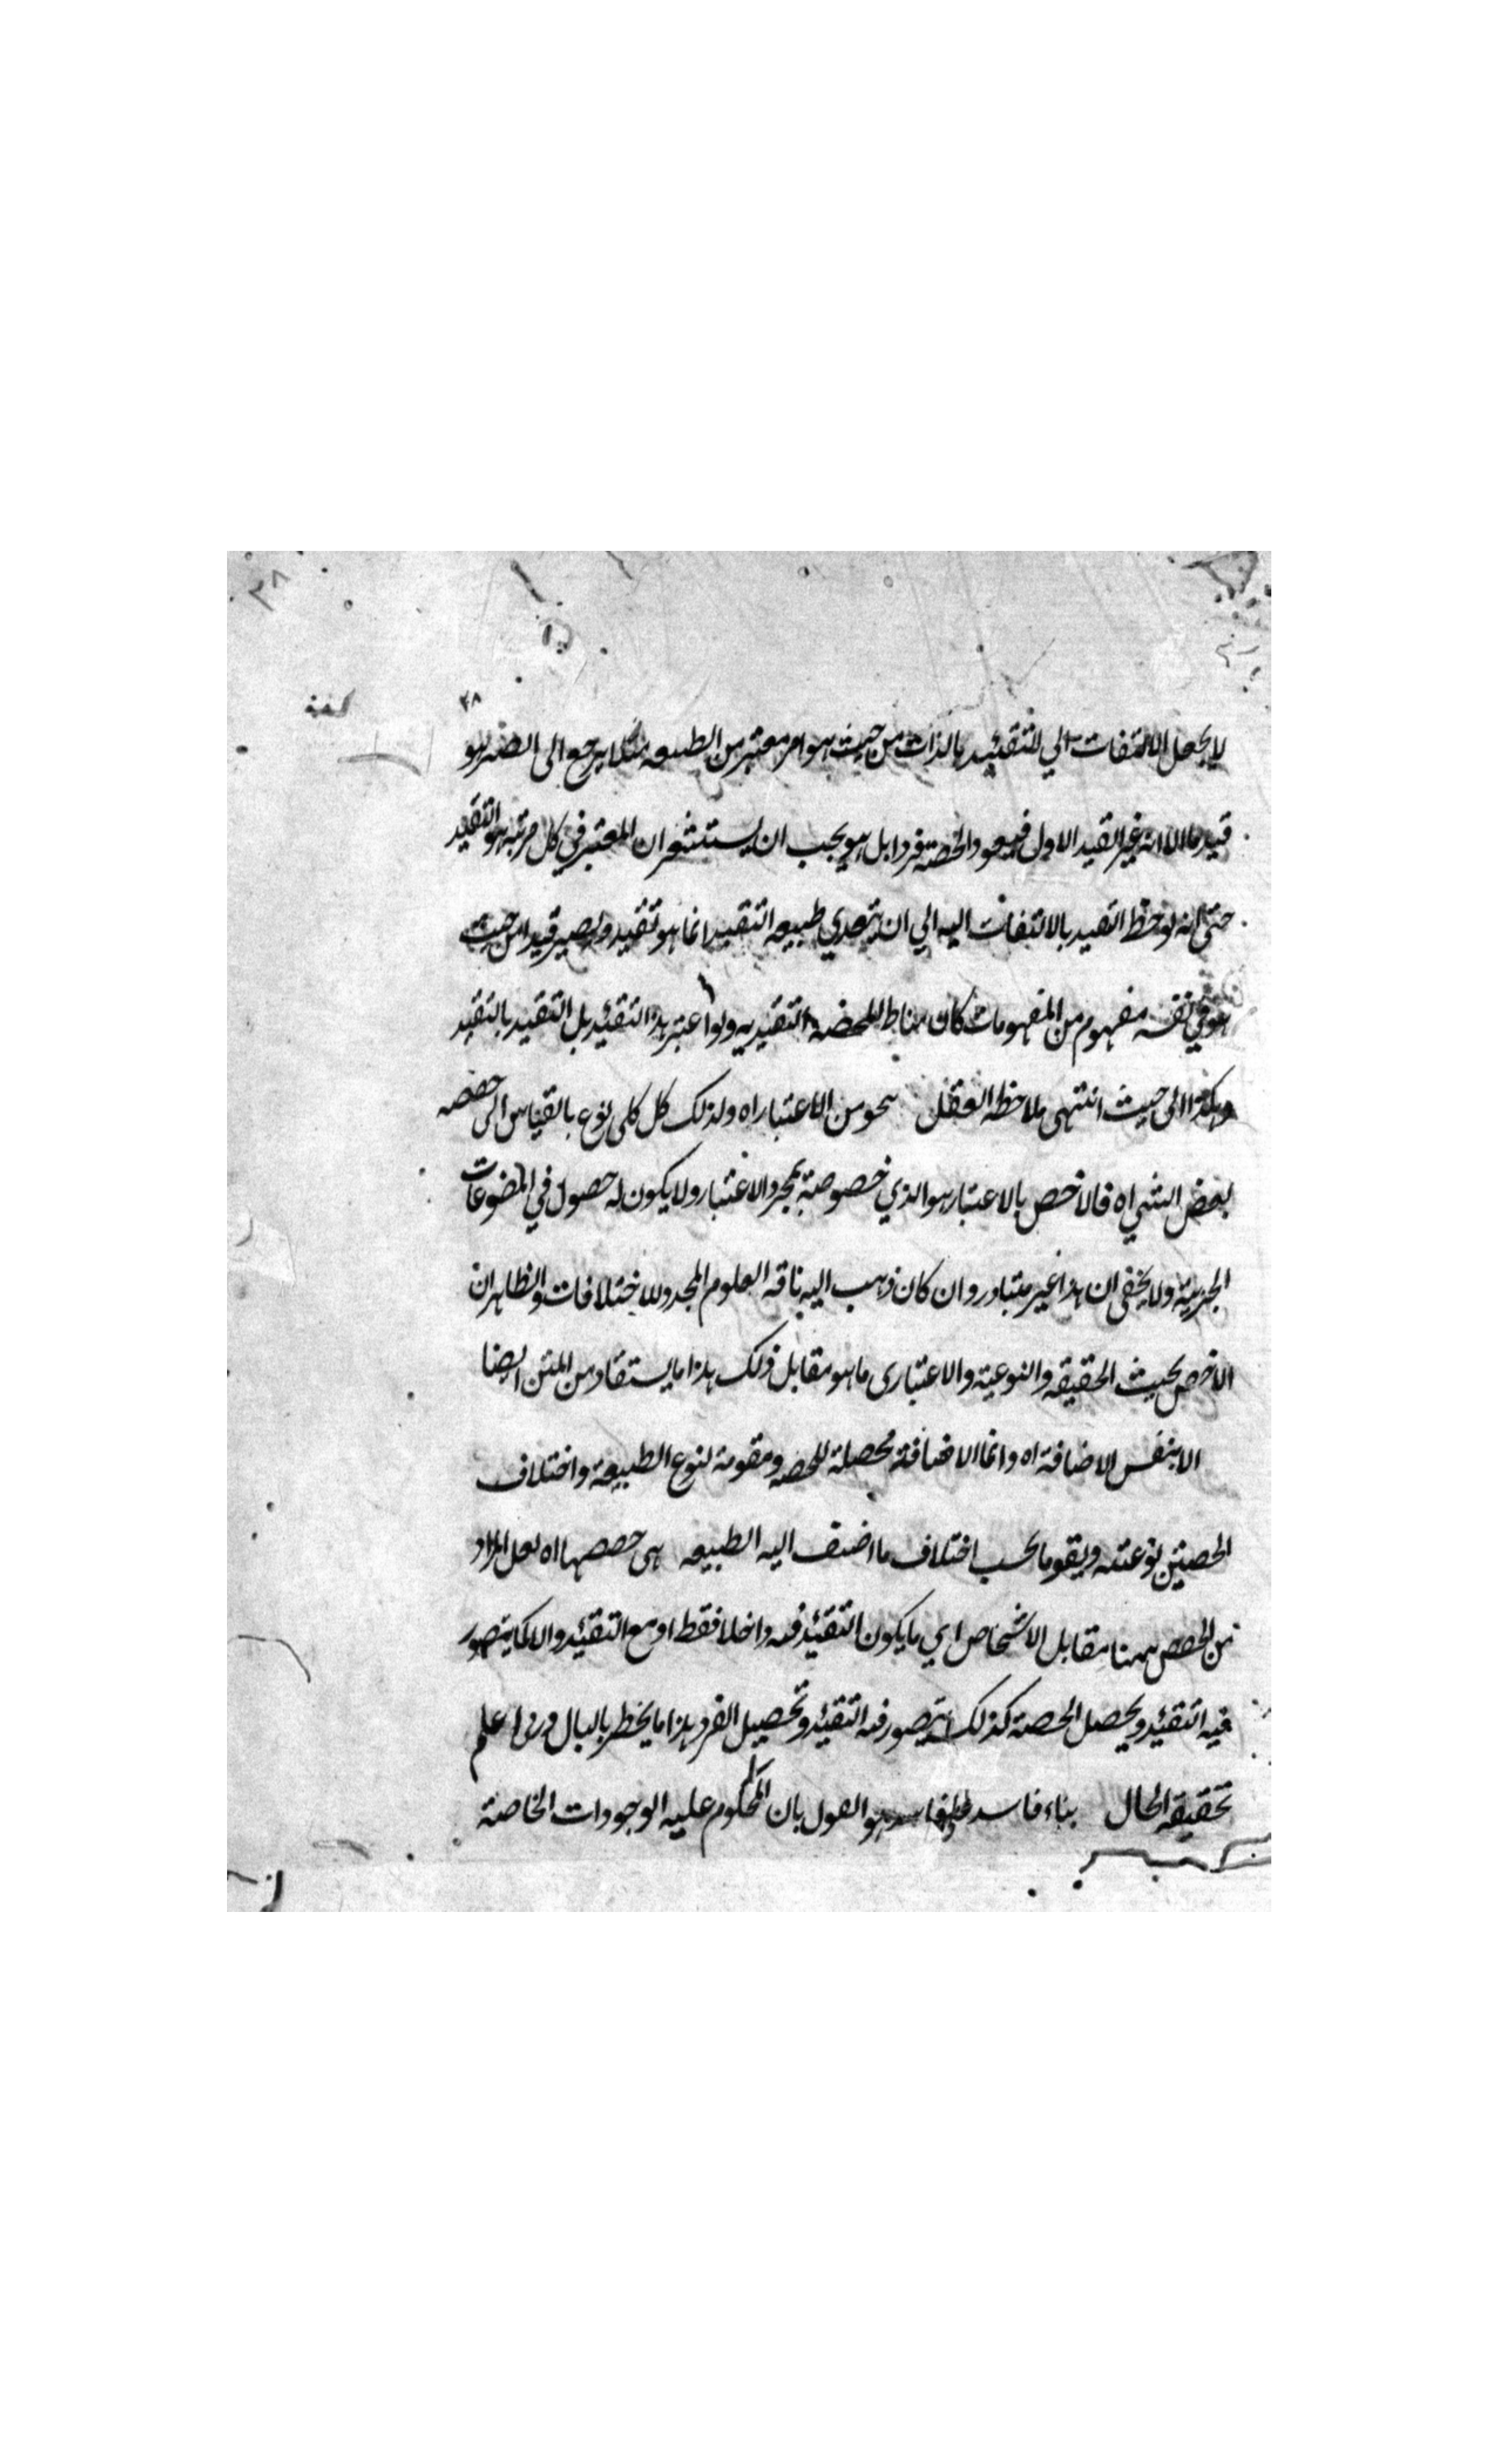 ٣٨
٣٨
لا يجعل الالتفات الي التقئيد بالذات من حيث هو امر معتبر من الطبيعه مثلا يرجع الى الضم لهو
قيد ما الا انه غير القيد الاول فيعود الحصة فردا بل هو يجب ان يستشعر ان المعتبر في كل مرتبه هو التقيد
حتى انه لو لوحظ التقيد بالالتفات اليه الي ان يتعدي طبيعه التقيد انما هو تقيد ولصير قيدا من حيث
هو في نفسه مفهوم من المفهومات كان مناط للحصه التقيديه ولو اعتبر هذا التقئيد بل التقيد بالتقيد
وهكذا الى حيث انتهى ملاحظه العقل بنحو من الاعتبار اه ولذلك كل كلى نوع بالقياس الى حصصه
لبعض الشي اه فالاخص بالاعتبار هو الذي خصوصية بمجرد الاعتبار ولا يكون له حصول في الموضوعات
الجزئية ولا يخفى ان هذا غير متبادر وان كان ذهب اليه ناقد العلوم المجدد للاختلافات والظاهر ان
الاخص بحيث الحقيقه والنوعية والاعتبارى ما هو مقابل ذلك هذا ما يستفاد من المتن ايضا
الا بنفس الاضافة اه وانما الاضافة محصلة للحصه ومقومة لنوع الطبيعة واختلاف
الحصتين نوعيته ويقوما بحسب اختلاف ما اضيف اليه الطبيعه هى حصصها اه لعل المراد
من الحصص ههنا مقابل الاشخاص اي ما يكون التقئيد فيه داخلا فقط او مع التقئيد والا كما يتصور
فيه التقئيد ويحصل الحصة كذلك يتصور فيه التقئيد وتحصيل الفرد هذا ما يخطر بالبال وربى اعلم
تحقيقه الحال بناء فاسد على فاسد هو القول بان المحكوم عليه الوجودات الخاصة